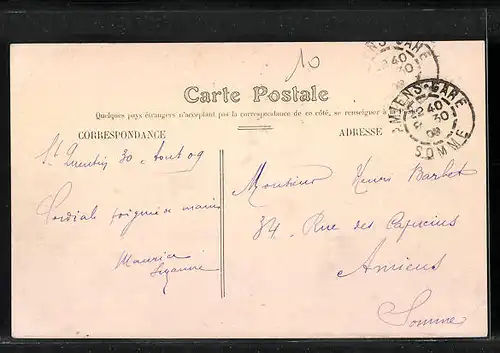 10
Carte Postale
Quelques pays étrangers n'acceptant pas la correspondance de ce côté, se renseigner à
CORRESPONDANCE
ADRESSE
AMIENS-GARE
22 40
30
09
SOMME
St Quentin 30 Aout 09
Cordiale poignée de main
Maurice
Monsieur Henri Barbet
34, Rue des Capucins
Amiens
Somme